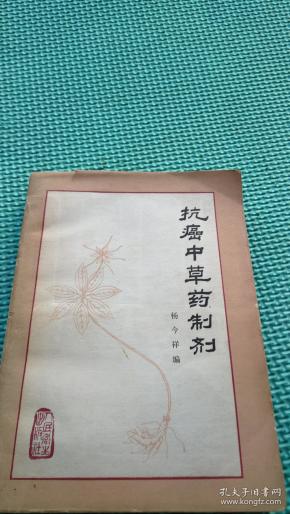 抗癌中草药制剂
杨今祥编
人民卫生出版社
孔夫子旧书网